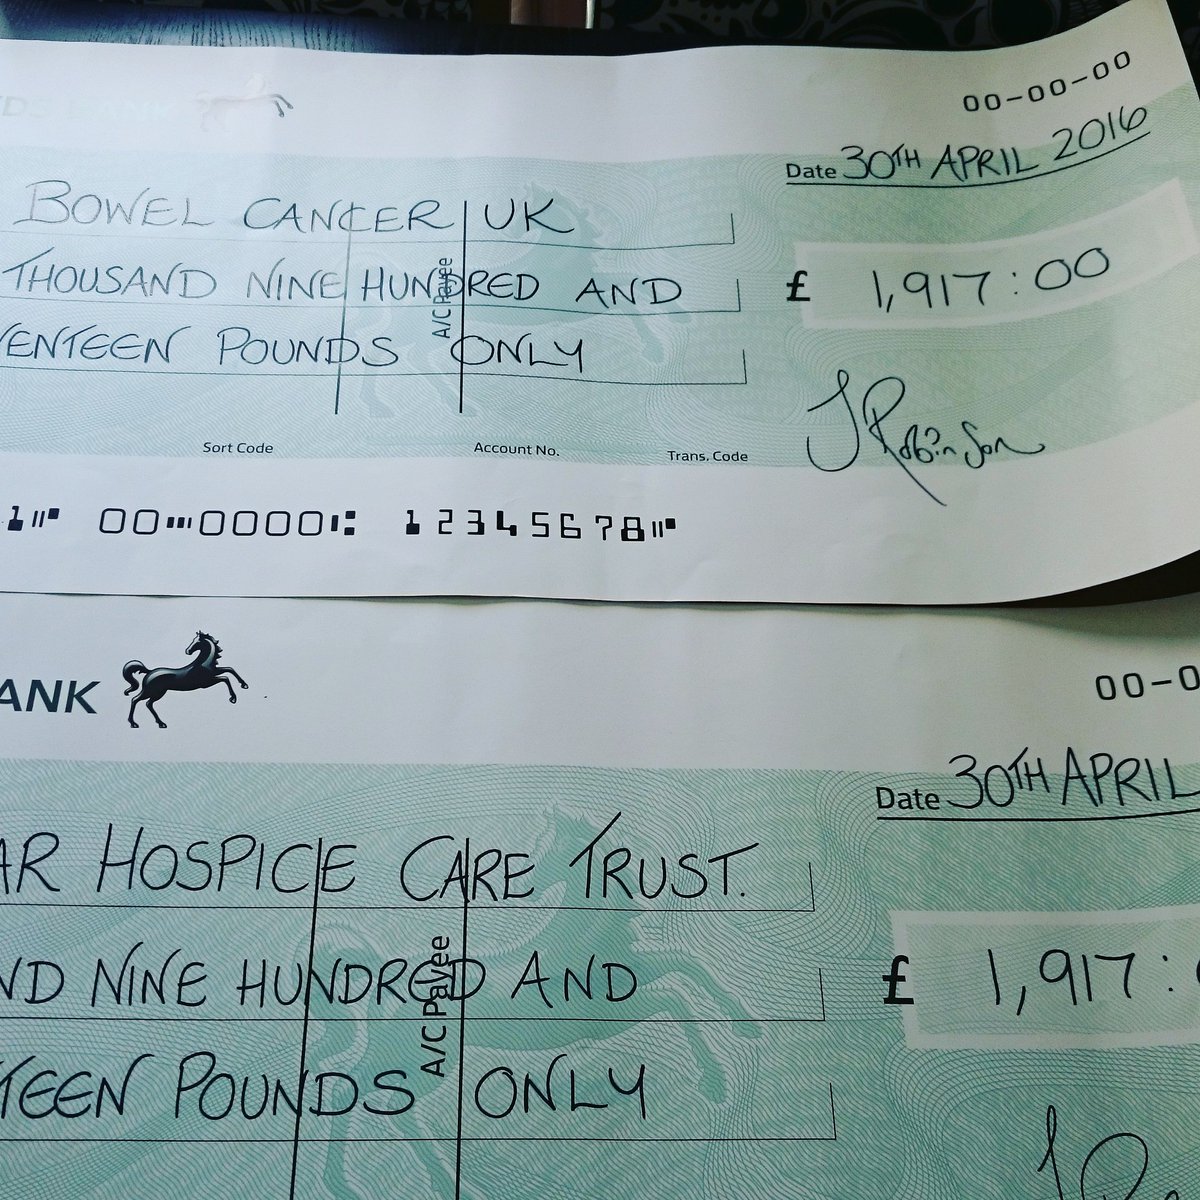 DS BANK
00-00-00
Date 30TH APRIL 2016
BOWEL CANCER UK
THOUSAND NINE HUNDRED AND
£ 1,917:00
VENTEEN POUNDS ONLY
A/C Payee
J Robinson
Sort Code Account No. Trans. Code
1 00 0000 12345678
ANK
00-0
Date 30TH APRIL
AR HOSPICE CARE TRUST.
ND NINE HUNDRED AND
£ 1,917:
TEEN POUNDS ONLY
A/C Payee